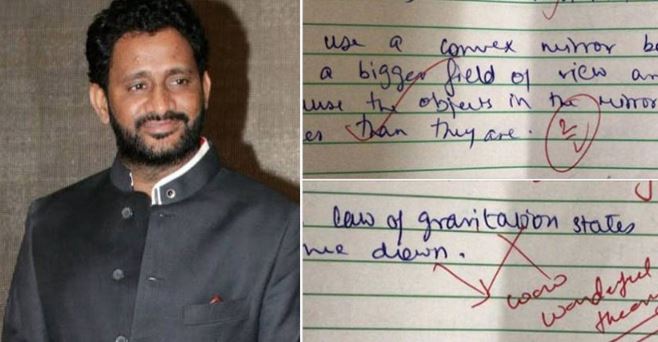 use a convex mirror be
a bigger field of view an
use the objects in the mirror
er than they are.
2
law of gravitation states
me down.
wow
wonderful